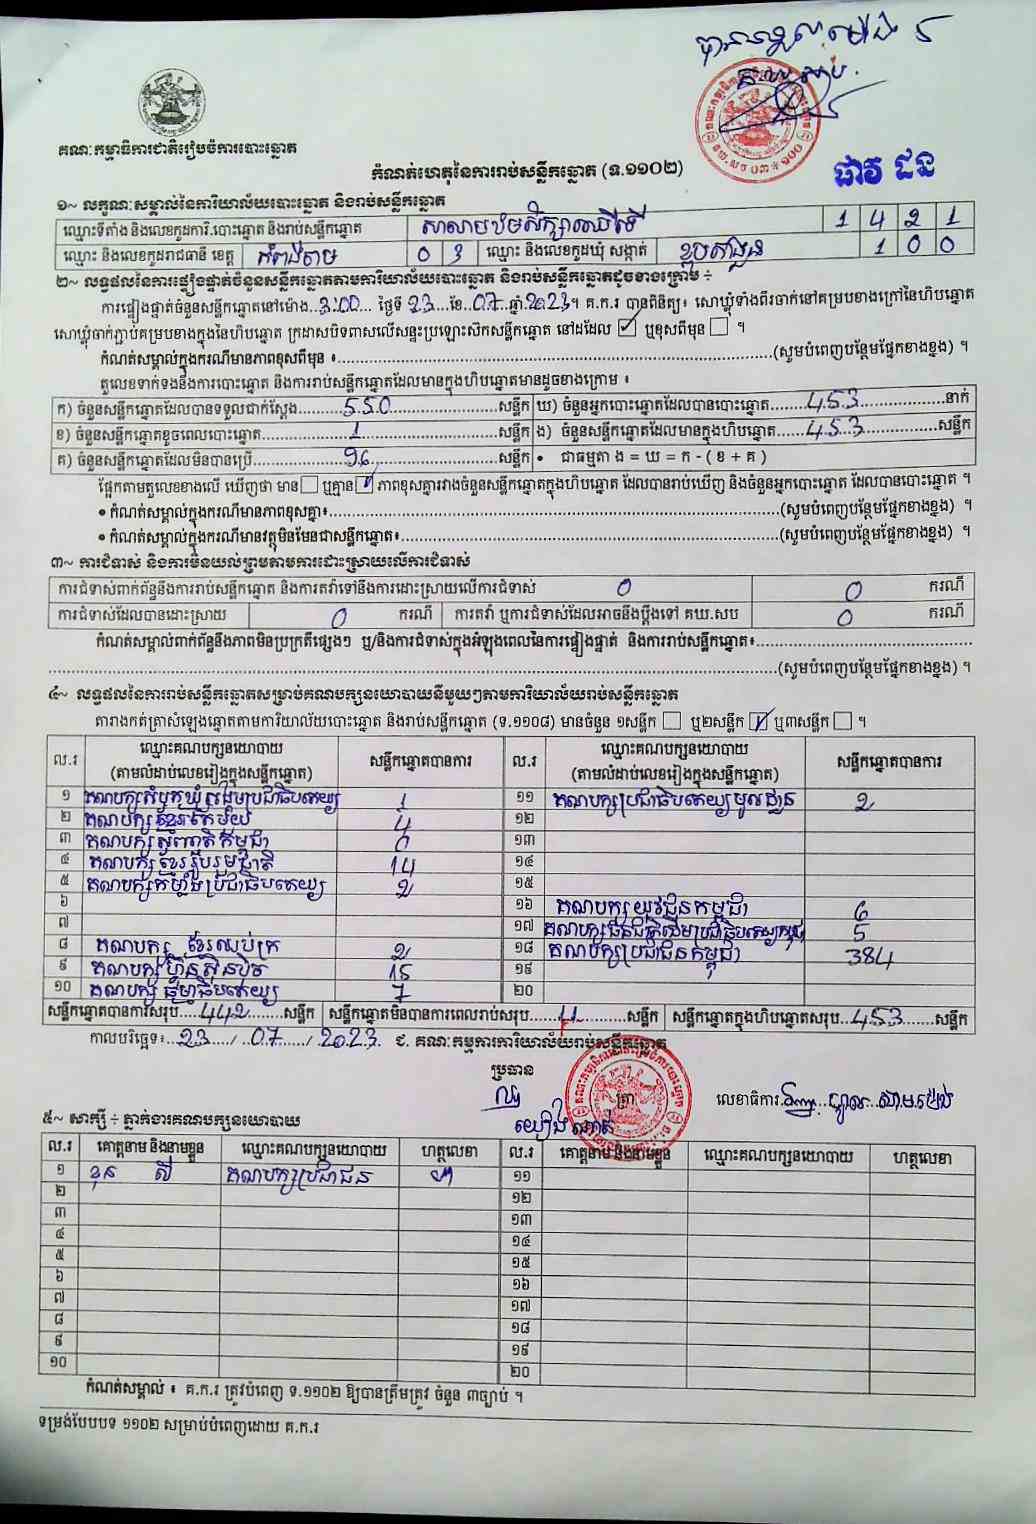 គណៈកម្មាធិការជាតិរៀបចំការបោះឆ្នោត
កំណត់ហេតុនៃការរាប់សន្លឹកឆ្នោត (ទ.១១០២)
១~ លក្ខណៈសម្គាល់នៃការិយាល័យបោះឆ្នោត និងរាប់សន្លឹកឆ្នោត
ឈ្មោះទីតាំង និងលេខកូដការិ.បោះឆ្នោត និងរាប់សន្លឹកឆ្នោត 1 4 2 1
ឈ្មោះ និងលេខកូដរាជធានី ខេត្ត កំពង់ចាម 0 3 ឈ្មោះ និងលេខកូដឃុំ សង្កាត់ 1 0 0
២~ លទ្ធផលនៃការផ្ទៀងផ្ទាត់ចំនួនសន្លឹកឆ្នោតតាមការិយាល័យបោះឆ្នោត និងរាប់សន្លឹកឆ្នោតដូចខាងក្រោម ÷
ការផ្ទៀងផ្ទាត់ចំនួនសន្លឹកឆ្នោតនៅម៉ោង..3:00.... ថ្ងៃទី 23 ខែ..07..ឆ្នាំ.2023។ គ.ក.រ បានពិនិត្យ ៖ សោឃ្លុំទាំងពីរចាក់នៅគម្របខាងក្រៅនៃហិបឆ្នោត
សោឃ្លុំចាក់ភ្ជាប់គម្របខាងក្នុងនៃហិបឆ្នោត ក្រដាសបិទពាសលើសន្ទះប្រឡោះស៊កសន្លឹកឆ្នោត នៅដដែល ☑ ឬខុសពីមុន ☐ ។
កំណត់សម្គាល់ក្នុងករណីមានភាពខុសពីមុន ៖........(សូមបំពេញបន្ថែមផ្នែកខាងខ្នង) ។
តួលេខទាក់ទងនឹងការបោះឆ្នោត និងការរាប់សន្លឹកឆ្នោតដែលមានក្នុងហិបឆ្នោតមានដូចខាងក្រោម ៖
ក) ចំនួនសន្លឹកឆ្នោតដែលបានទទួលជាក់ស្តែង........550........សន្លឹក ឃ) ចំនួនអ្នកបោះឆ្នោតដែលបានបោះឆ្នោត........453........នាក់
ខ) ចំនួនសន្លឹកឆ្នោតខូចពេលបោះឆ្នោត........1........សន្លឹក ង) ចំនួនសន្លឹកឆ្នោតដែលមានក្នុងហិបឆ្នោត........453........សន្លឹក
គ) ចំនួនសន្លឹកឆ្នោតដែលមិនបានប្រើ........96........សន្លឹក • ជាធម្មតា ង = ឃ = ក - ( ខ + គ )
ផ្អែកតាមតួលេខខាងលើ ឃើញថា មាន ☐ ឬគ្មាន ☑ ភាពខុសគ្នារវាងចំនួនសន្លឹកឆ្នោតក្នុងហិបឆ្នោត ដែលបានរាប់ឃើញ និងចំនួនអ្នកបោះឆ្នោត ដែលបានបោះឆ្នោត ។
• កំណត់សម្គាល់ក្នុងករណីមានភាពខុសគ្នា៖........(សូមបំពេញបន្ថែមផ្នែកខាងខ្នង) ។
• កំណត់សម្គាល់ក្នុងករណីមានវត្ថុមិនមែនជាសន្លឹកឆ្នោត៖........(សូមបំពេញបន្ថែមផ្នែកខាងខ្នង) ។
៣~ ការជំទាស់ និងការមិនយល់ព្រមតាមការដោះស្រាយលើការជំទាស់
ការជំទាស់ពាក់ព័ន្ធនឹងការរាប់សន្លឹកឆ្នោត និងការតវ៉ាទៅនឹងការដោះស្រាយលើការជំទាស់ 0 0 ករណី
ការជំទាស់ដែលបានដោះស្រាយ 0 ករណី ការតវ៉ា ឬការជំទាស់ដែលអាចនឹងប្តឹងទៅ គឃ.សប 0 ករណី
កំណត់សម្គាល់ពាក់ព័ន្ធនឹងភាពមិនប្រក្រតីផ្សេងៗ ឬ/និងការជំទាស់ក្នុងអំឡុងពេលនៃការផ្ទៀងផ្ទាត់ និងការរាប់សន្លឹកឆ្នោត៖........
........(សូមបំពេញបន្ថែមផ្នែកខាងខ្នង) ។
៤~ លទ្ធផលនៃការរាប់សន្លឹកឆ្នោតសម្រាប់គណបក្សនយោបាយនីមួយៗតាមការិយាល័យរាប់សន្លឹកឆ្នោត
តារាងកត់ត្រាសំឡេងឆ្នោតតាមការិយាល័យបោះឆ្នោត និងរាប់សន្លឹកឆ្នោត (ទ.១១០៨) មានចំនួន ១សន្លឹក ☐ ឬ២សន្លឹក ☑ ឬ៣សន្លឹក ☐ ។
ល.រ ឈ្មោះគណបក្សនយោបាយ (តាមលំដាប់លេខរៀងក្នុងសន្លឹកឆ្នោត) សន្លឹកឆ្នោតបានការ ល.រ ឈ្មោះគណបក្សនយោបាយ (តាមលំដាប់លេខរៀងក្នុងសន្លឹកឆ្នោត) សន្លឹកឆ្នោតបានការ
១ គណបក្សសំបុកឃ្មុំសង្គមប្រជាធិបតេយ្យ 1 ១១ គណបក្សប្រជាធិបតេយ្យមូលដ្ឋាន 2
២ គណបក្សខ្មែរអភិវឌ្ឍន៍ 4 ១២
៣ គណបក្សសញ្ជាតិកម្ពុជា 0 ១៣
៤ គណបក្សខ្មែររួបរួមជាតិ 14 ១៤
៥ គណបក្សកម្លាំងប្រជាធិបតេយ្យ 2 ១៥
៦ ១៦ គណបក្សយុវជនកម្ពុជា 6
៧ ១៧ គណបក្សជនជាតិដើមប្រជាធិបតេយ្យកម្ពុជា 5
៨ គណបក្ស ខ្មែរឈប់ក្រ 2 ១៨ គណបក្សប្រជាជនកម្ពុជា 384
៩ គណបក្សហ៊្វុនស៊ិនប៉ិច 15 ១៩
១០ គណបក្ស ធម្មាធិបតេយ្យ 7 ២០
សន្លឹកឆ្នោតបានការសរុប....442........សន្លឹក សន្លឹកឆ្នោតមិនបានការពេលរាប់សរុប.....11........សន្លឹក សន្លឹកឆ្នោតក្នុងហិបឆ្នោតសរុប..453.......សន្លឹក
កាលបរិច្ឆេទ៖..23..../..07..../ 2023. ជ. គណៈកម្មការការិយាល័យរាប់សន្លឹកឆ្នោត
ប្រធាន
ត្រា
លេខាធិការ
៥~ សាក្សី ÷ ភ្នាក់ងារគណបក្សនយោបាយ
ល.រ គោត្តនាម និងនាមខ្លួន ឈ្មោះគណបក្សនយោបាយ ហត្ថលេខា ល.រ គោត្តនាម និងនាមខ្លួន ឈ្មោះគណបក្សនយោបាយ ហត្ថលេខា
១ ខុន ស៊ី គណបក្សប្រជាជន ១១
២ ១២
៣ ១៣
៤ ១៤
៥ ១៥
៦ ១៦
៧ ១៧
៨ ១៨
៩ ១៩
១០ ២០
កំណត់សម្គាល់ ៖ គ.ក.រ ត្រូវបំពេញ ទ.១១០២ ឱ្យបានត្រឹមត្រូវ ចំនួន ៣ច្បាប់ ។
ទម្រង់បែបបទ ១១០២ សម្រាប់បំពេញដោយ គ.ក.រ